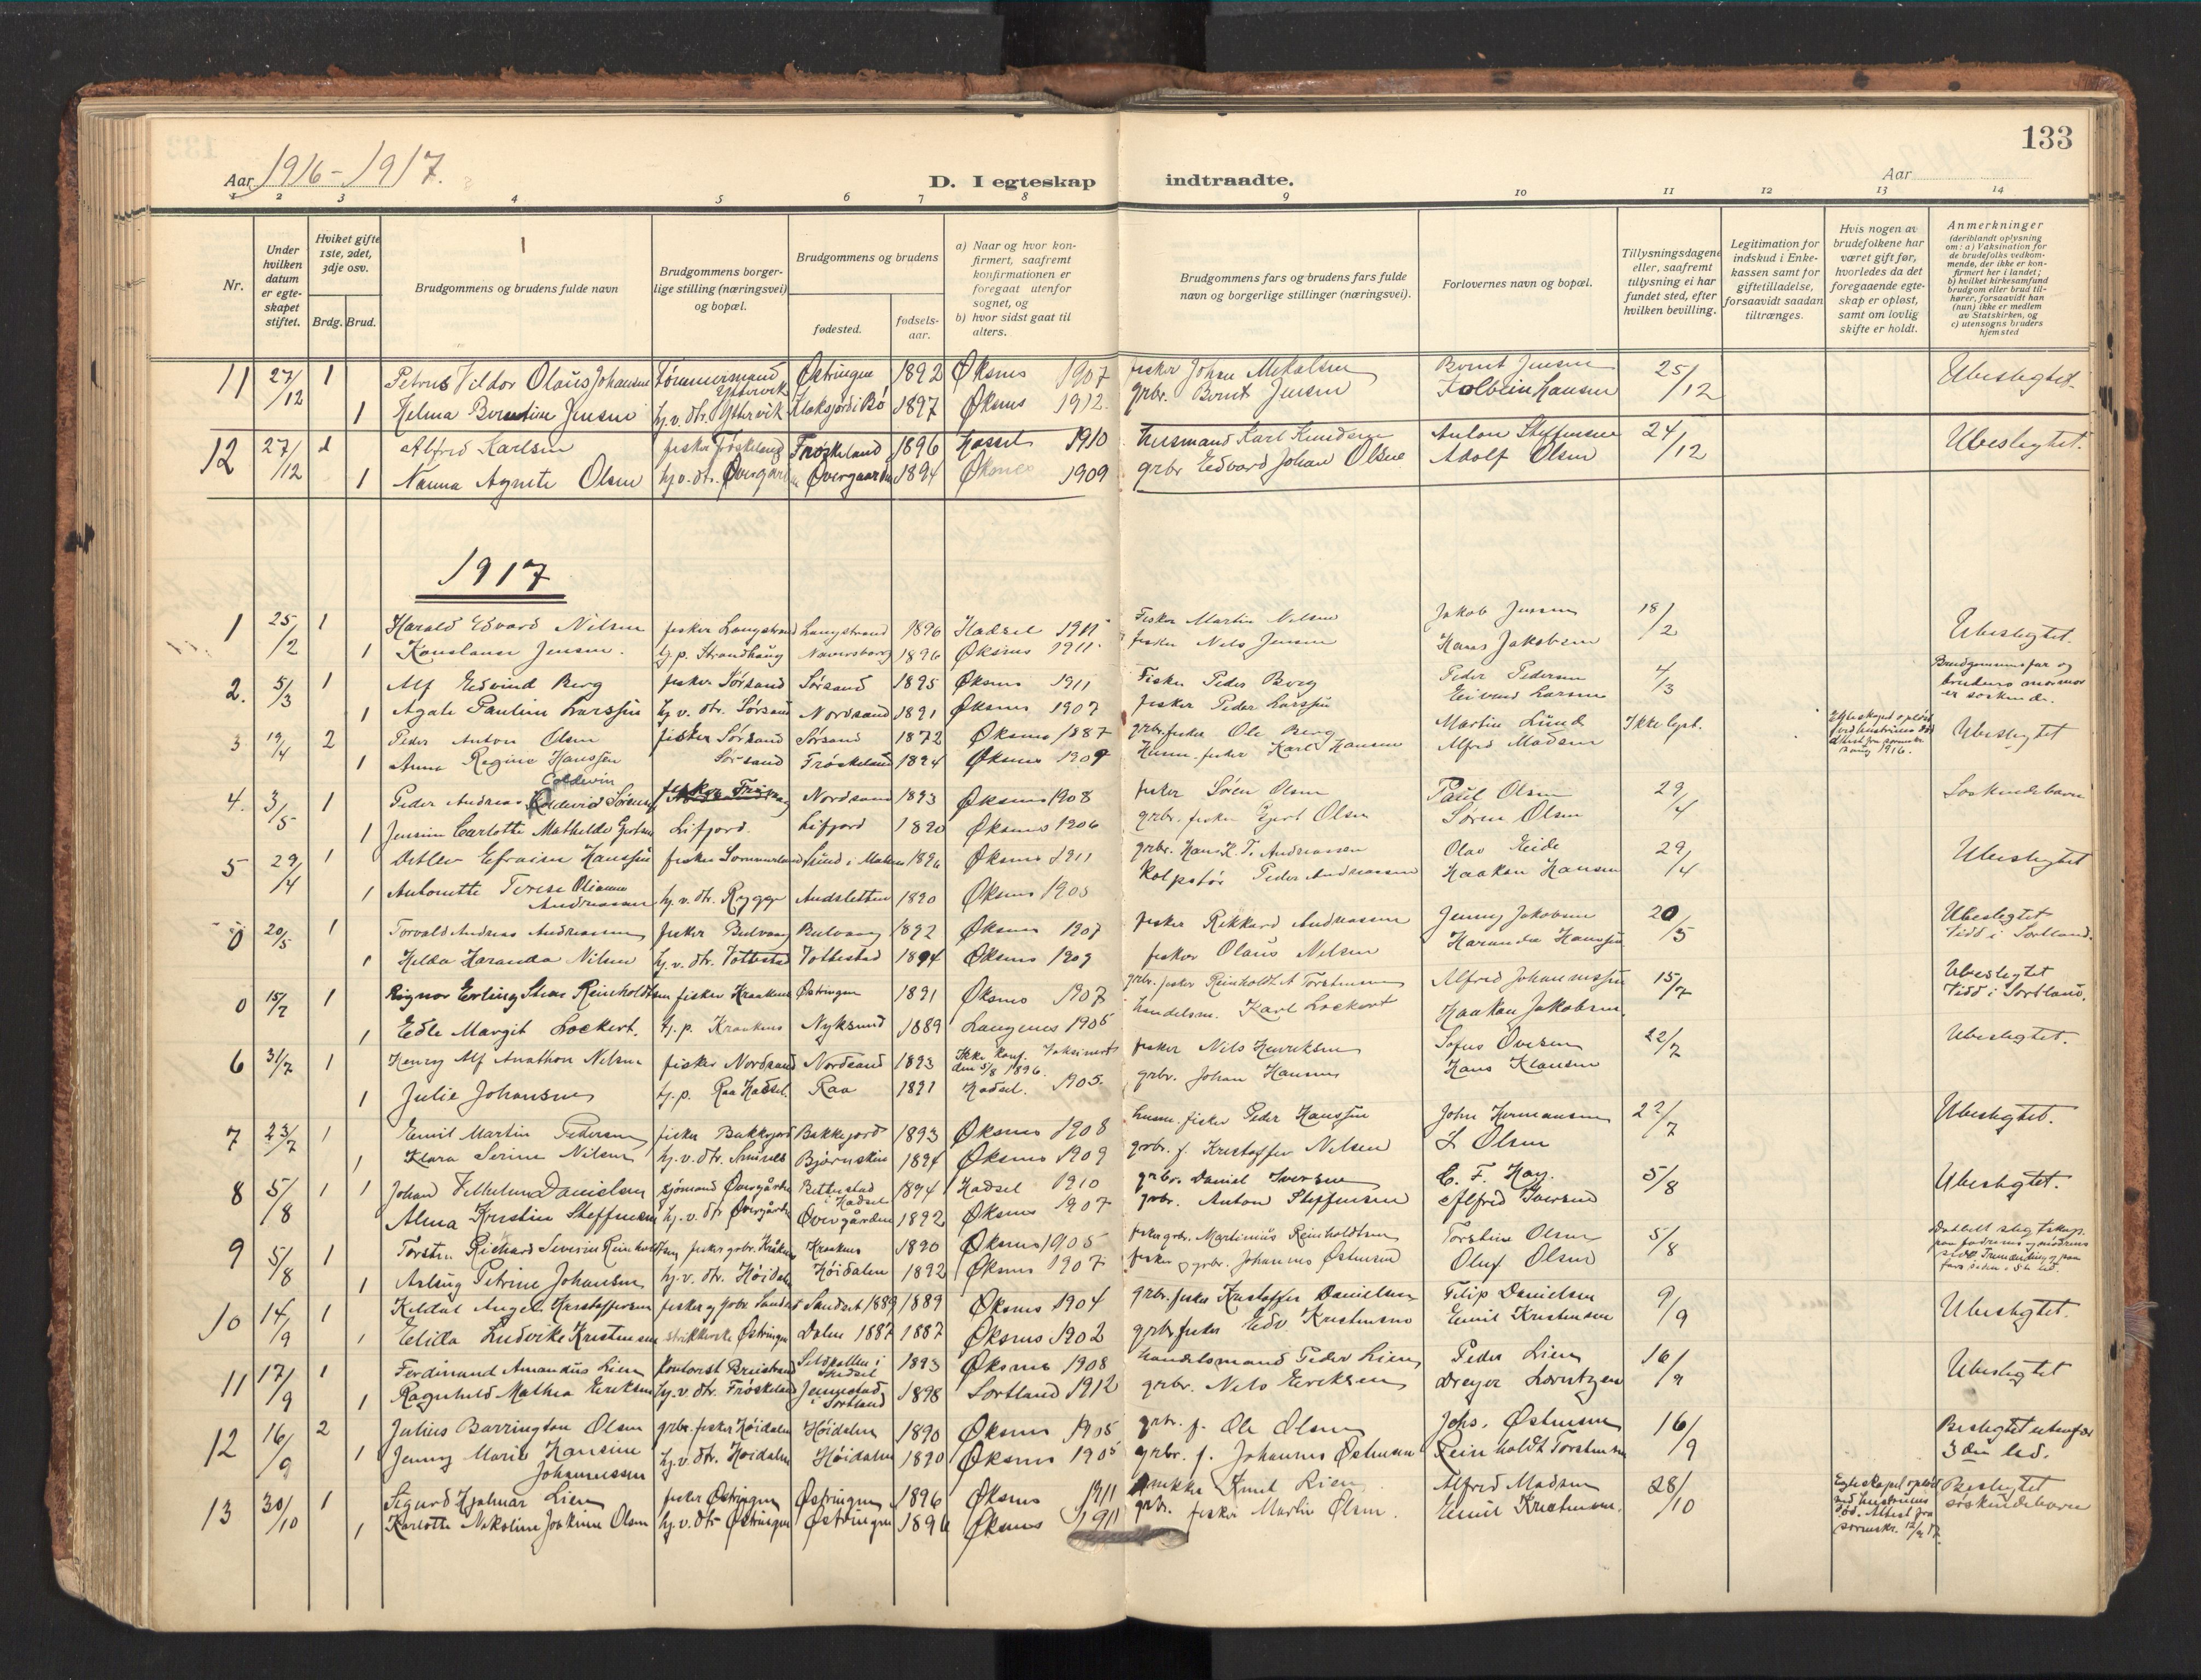 133
Aar 1916-1917.
D. I egteskap indtraadte.
Aar
1 2 3 4 5 6 7 8 9 10 11 12 13 14
Nr.
Under hvilken datum er egteskapet stiftet.
Hviket gifte 1ste, 2det, 3dje osv.
Brdg. Brud.
Brudgommens og brudens fulde navn
Brudgommens borgerlige stilling (næringsvei) og bopæl.
Brudgommens og brudens
fødested.
fødselsaar.
a) Naar og hvor konfirmert, saafremt konfirmationen er foregaat utenfor sognet, og
b) hvor sidst gaat til alters.
Brudgommens fars og brudens fars fulde navn og borgerlige stillinger (næringsvei).
Forlovernes navn og bopæl.
Tillysningsdagene eller, saafremt tillysning ei har fundet sted, efter hvilken bevilling.
Legitimation for indskud i Enkekassen samt for giftetilladelse, forsaavidt saadan tiltrænges.
Hvis nogen av brudefolkene har været gift før, hvorledes da det foregaaende egteskap er opløst, samt om lovlig skifte er holdt.
Anmerkninger (deriblandt oplysning om: a) Vaksination for de brudefolks vedkommende, der ikke er konfirmert her i landet; b) hvilket kirkesamfund brudgom eller brud tilhører, forsaavidt han (hun) ikke er medlem av Statskirken, og c) utensogns bruders hjemsted
11 27/12 1 Petrus Vildor Olaüs Johansen Tømmermand Ystervik Østringen 1892 Øksnes 1907 fisker Johan Mekalsen Bernt Jensen 25/12 Ubeslegtet
1 Helma Berntine Jensen hj.v. dtr. Ystervik Klaksjord i Bø 1897 Øksnes 1912. grbr. Bernt Jensen Kolbein Hansen
12 27/12 1 Alfred Karlsen fisker Frøskeland Frøskeland 1896 Hassel 1910 husmand Karl Knudsen Anton Steffensen 24/12 Ubeslegtet.
1 Nanna Agnete Olsen hj.v. dtr. Øvergaarden Øvergaarden 1894 Øksnes 1909 grbr Edvard Johan Olsen Adolf Olsen
1917
1 25/2 1 Harald Edvard Nilsen fisker Langstrand Langstrand 1896 Hadsel 1911 Fisker Martin Nilsen Jakob Jensen 18/2 Ubeslegtet.
1 Konstanse Jensen. tj.p. Strandhaug 1896 Øksnes 1911 fisker Nils Jensen Hans Jakobsen
2. 5/3 1 Alf Eidvind Berg fisker Sørsand Sørsand 1895 Øksnes 1911 Fisker Peder Berg Peder Pedersen 4/3 Brudgommens far og brudens mormor er søskende.
1 Agate Pauline Larssen hj.v. dtr. Sørsand Nordsand 1891 Øksnes 1907 fisker Peder Larssen Eivind Larsen
3 19/4 2 Peder Anton Olsen fisker Sørsand Sørsand 1872 Øksnes 1887 grbr. fisker Ole Berg Martin Lund Ikke lyst. Ubeslegtet
1 Anna Regine Hanssen Sørsand Frøskeland 1894 Øksnes 1909 Husm. fisker Karl Hansen Alfred Madsen
4. 3/5 1 Peder Andreas Coldevin Sørensen Nordsand 1893 Øksnes 1908 fisker Søren Olsen Paul Olsen 29/4 Søskendebarn
1 Jensine Carlotte Mathilde Gjertsen Lifjord. Lifjord 1890 Øksnes 1906 grbr. fisker Gjert Olsen Søren Olsen
5 29/4 1 Detlev Efraim Hanssen fisker Sommerland 1896 Øksnes 1911 grbr. Hans K. T. Andreassen Olav Eide 29/4 Ubeslegtet
1 Antonette Terese Olianna Andreassen hj.v. dtr. Rygge Andsletten 1890 Øksnes 1905 Kolportør Peder Andreassen Haakon Hansen
0 20/5 1 Torvald Andreas Andreassen fisker Bulvaag Bulvaag 1892 Øksnes 1907 fisker Rikkard Andreassen Jenny Jakobsen 20/5 Ubeslegtet Vidd i Sortland.
1 Hilda Haranda Nilsen hj.v. dtr. Vottestad Vottestad 1894 Øksnes 1909 fisker Olaus Nilsen Haranda Hanssen
0 15/7 1 Ragnor Erling Reinholdtsen fisker Kraaknes Østringen 1891 Øksnes 1907 grbr. fisker Reinholdt A Torstensen Alfred Johannessen 15/7 Ubeslegtet Vidd i Sortland.
1 Edle Margit Lockert. tj.p. Kraaknes Nyksund 1889 Langenes 1905 handelsm. Karl Lockert Haakon Jakobsen.
6 31/7 1 Henry Alf Anathon Nilsen fisker Nordsand Nordsand 1893 Ikke konf. Vaksinert den 5/8 1896. fisker Nils Henriksen Sofus Ovesen 22/7 Ubeslegtet.
1 Julie Johansen tj.p. Raa Hadsel. Raa 1891 Hadsel. 1905. grbr. Johan Hansen Hans Klausen
7 23/7 1 Emil Martin Pedersen fisker Bakkejord Bakkejord 1893 Øksnes 1908 husm. fisker Peder Hanssen John Hermansen 22/7 Ubeslegtet.
1 Klara Serine Nilsen hj.v. dtr. Bjørnskin 1894 Øksnes 1909 grbr. f. Kristoffer Nilsen L Olsen
8 5/8 1 1 Johan Vilhelm Danielsen sjømand Øvergården Bitterstad i Hadsel 1894 Hadsel 1910 grbr. Daniel Iversen C. F. Hay. 5/8 Ubeslegtet.
Alma Kristine Steffensen hj.v. dtr Øvergården Øvergården 1892 Øksnes 1907 grbr. Anton Steffensen Alfred Iversen
9 5/8 1 Torsten Richard Severin Reinholdtsen fisker grbr. Kråknes Kraaknes 1890 Øksnes 1905 fisker grbr. Martinius Reinholdtsen Torstein Olsen 5/8
1 Aslaug Petrine Johansen hj.v. dtr. Høidalen Høidalen 1892 Øksnes 1907 fisker og grbr. Johannes Østensen Oluf Olsen
10 14/9 1 Kildal Angel Kristoffersen fisker og grbr. Sandset Sandset 1889 1889 Øksnes 1904 grbr. fisker Kristoffer Danielsen Filip Danielsen 9/9 Ubeslegtet.
1 Elida Ludvikke Kristensen strikkerske Østringen Dalen 1887 1887 Øksnes 1902 grbr. fisker Edv Kristensen Emil Kristensen
11 17/9 1 Ferdinand Amandus Lien Kontorist 1893 Øksnes 1908 handelsmand Peder Lien Peder Lien 16/9 Ubeslegtet
1 Ragnhild Mathea Eriksen hj.v. dtr. Frøskeland Jennestad i Sortland 1898 Sortland 1912 grbr. Nils Eriksen Dreyer Lorntzen
12 16/9 2 Julius Barrington Olsen grbr. fisker Høidalen Høidalen 1890 Øksnes 1905 grbr. f. Ole Olsen Johs. Østensen 16/9 Beslegtet utenfor 3die led.
1 Jenny Marie Hansine Johannessen hj.v. dtr. Høidalen Høidalen 1890 Øksnes 1905 grbr. f. Johannes Østensen Reinholdt Torstensen
13 30/10 1 Sigurd Hjalmar Lien fisker Østringen Østringen 1896 Øksnes 1911 Knut Lien Alfred Madsen 28/10 Beslegtet søskendebarn
1 Karlotte Nikoline Joakime Olsen hj.v. dtr Østringen Østringen 1896 Øksnes 1911 grbr. fisker Martin Olsen. Emil Kristensen.